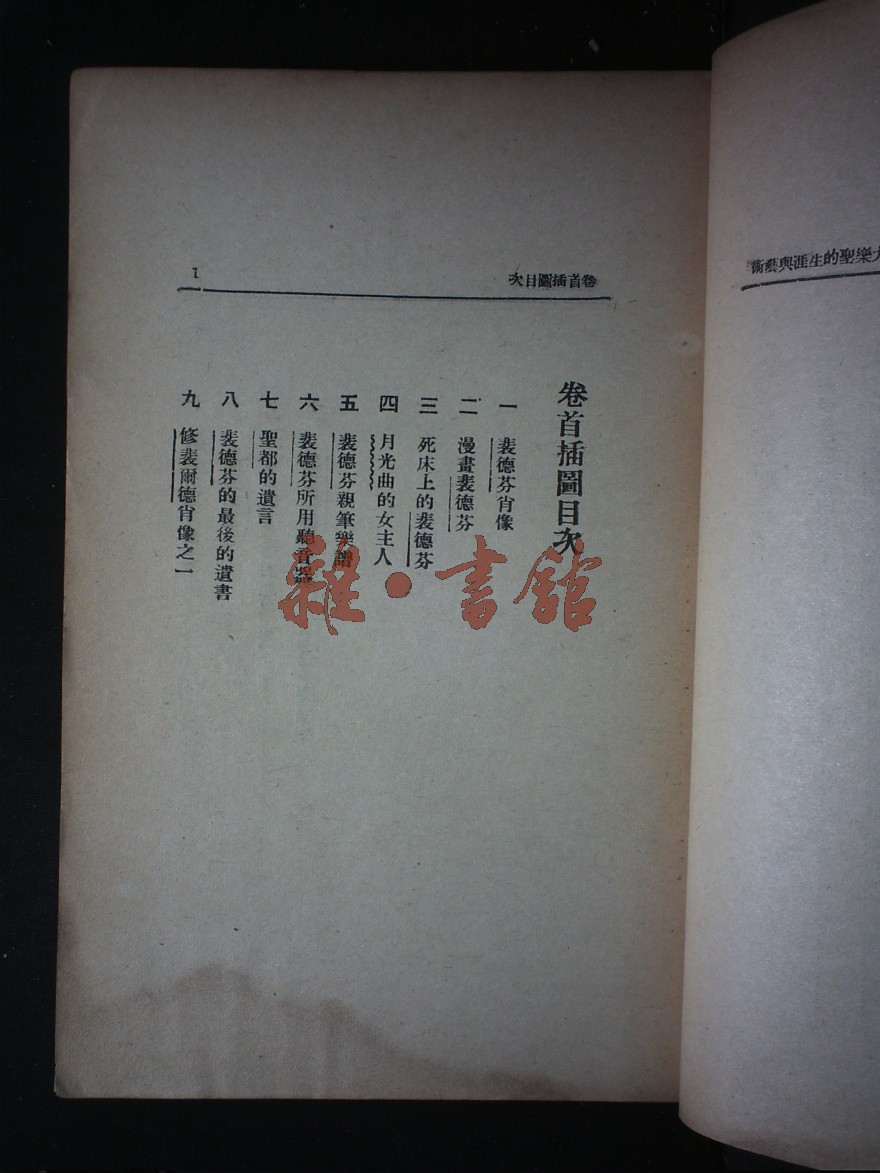 樂聖的生涯與藝術
卷首插圖目次
1
卷首插圖目次
一 裴德芬肖像
二 漫畫裴德芬
三 死床上的裴德芬
四 月光曲的女主人
五 裴德芬親筆樂譜
六 裴德芬所用聽音器
七 聖都的遺言
八 裴德芬的最後的遺書
九 修裴爾德肖像之一
雜·書館